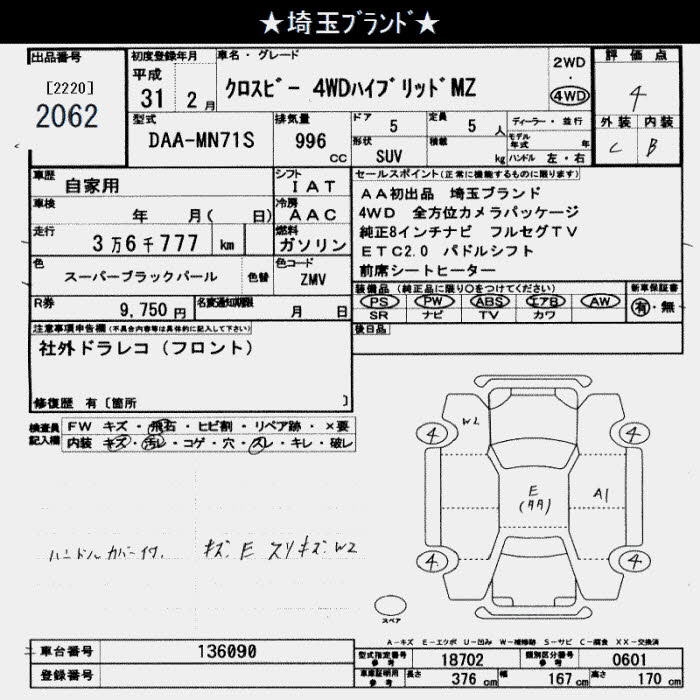 ★埼玉ﾌﾞﾗﾝﾄﾞ★
出品番号
[2220]
2062
初度登録年月
平成
31 2月
車名・グレード
クロスビー 4WDハイブリッドMZ
2WD
・
4WD
評価点
4
外装 内装
C B
型式
DAA-MN71S
排気量
996
CC
ドア 5
形状
SUV
定員 5 人
積載 kg
ディーラー・並行
モデル年式 年
ハンドル 左・右
車歴
自家用
シフト
IAT
車検
年 月( 日)
冷房
AAC
走行
3万6千777 km
燃料
ガソリン
色
スーパーブラックパール
色替
色コード
ZMV
R券
9,750円
名変通知期限
月 日
セールスポイント(正常に機能するものに限ります)
AA初出品 埼玉ブランド
4WD 全方位カメラパッケージ
純正8インチナビ フルセグTV
ETC2.0 パドルシフト
前席シートヒーター
装備品(純正品に限り○をつけてください)
新車保証書
PS PW ABS エアB AW
SR ナビ TV カワ
有・無
後日品
注意事項申告欄(不具合内容等は具体的に記入して下さい)
社外ドラレコ(フロント)
修復歴 有〔箇所 〕
検査員
記入欄
FW キズ・飛石・ヒビ割・リペア跡・×要
内装 キズ・汚レ・コゲ・穴・スレ・キレ・破レ
ハンドルカバー付
キズ E スリキズ W2
W2
4
4
E
(タタ)
A1
4
4
スペア
A-キズ E-エクボ U-凹み W-補修跡 S-サビ C-腐食 XX-交換済
車台番号
136090
登録番号
型式指定番号
参考
18702
類別区分番号
参考
0601
車庫証明用
参考
長さ 376 cm
幅 167 cm
高さ 170 cm